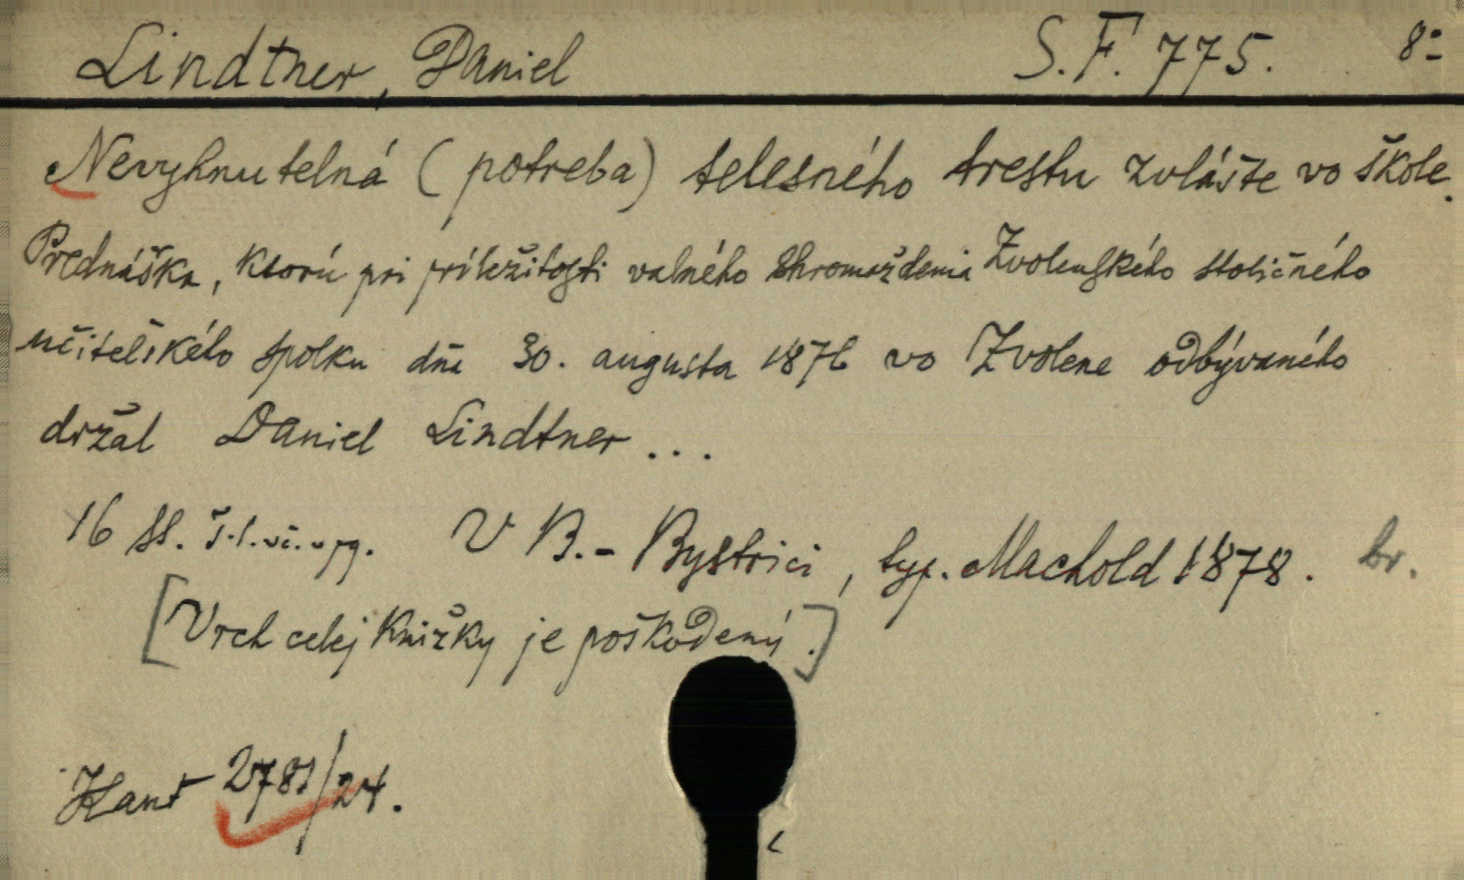 Lindtner, Daniel S. F. 775. 8°
Nevyhnutelná (potreba) telesného trestu zvlášte vo škole.
Prednáška, ktorú pri príležitosti valného shromaždenia Zvolenského stoličného
učitelského spolku dňa 30. augusta 1876 vo Zvolene odbývaného
držal Daniel Lindtner...
16 st. V B.-Bystrici, typ. Machold 1878. br.
[Vrch celej knižky je poškodený.]
2781/24.